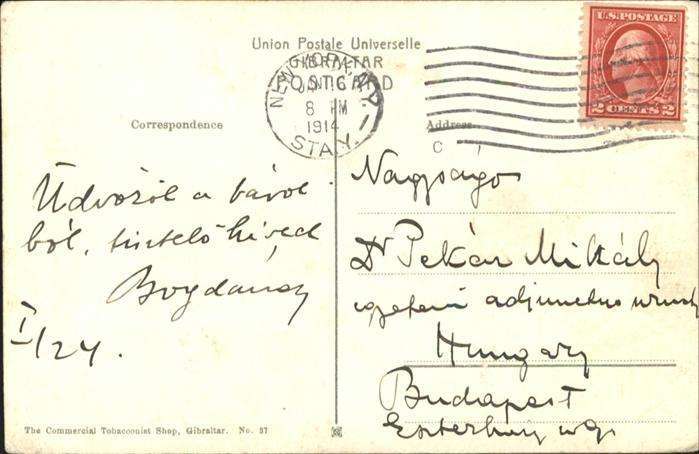 Union Postale Universelle
GIBRALTAR
POSTCARD
U.S. POSTAGE
2 CENTS 2
NEW YORK, N.Y.
8 PM
1914
STA.
Correspondence
Address
C
Üdvözöl a távol
ból, tisztelő híved
Bogdánfy
I/24.
Nagyságo
Dr Pekár Mihály
egyetemi adjunctus urnak
Hungary
Budapest
Eszterházy u
The Commercial Tobacconist Shop, Gibraltar. No. 37